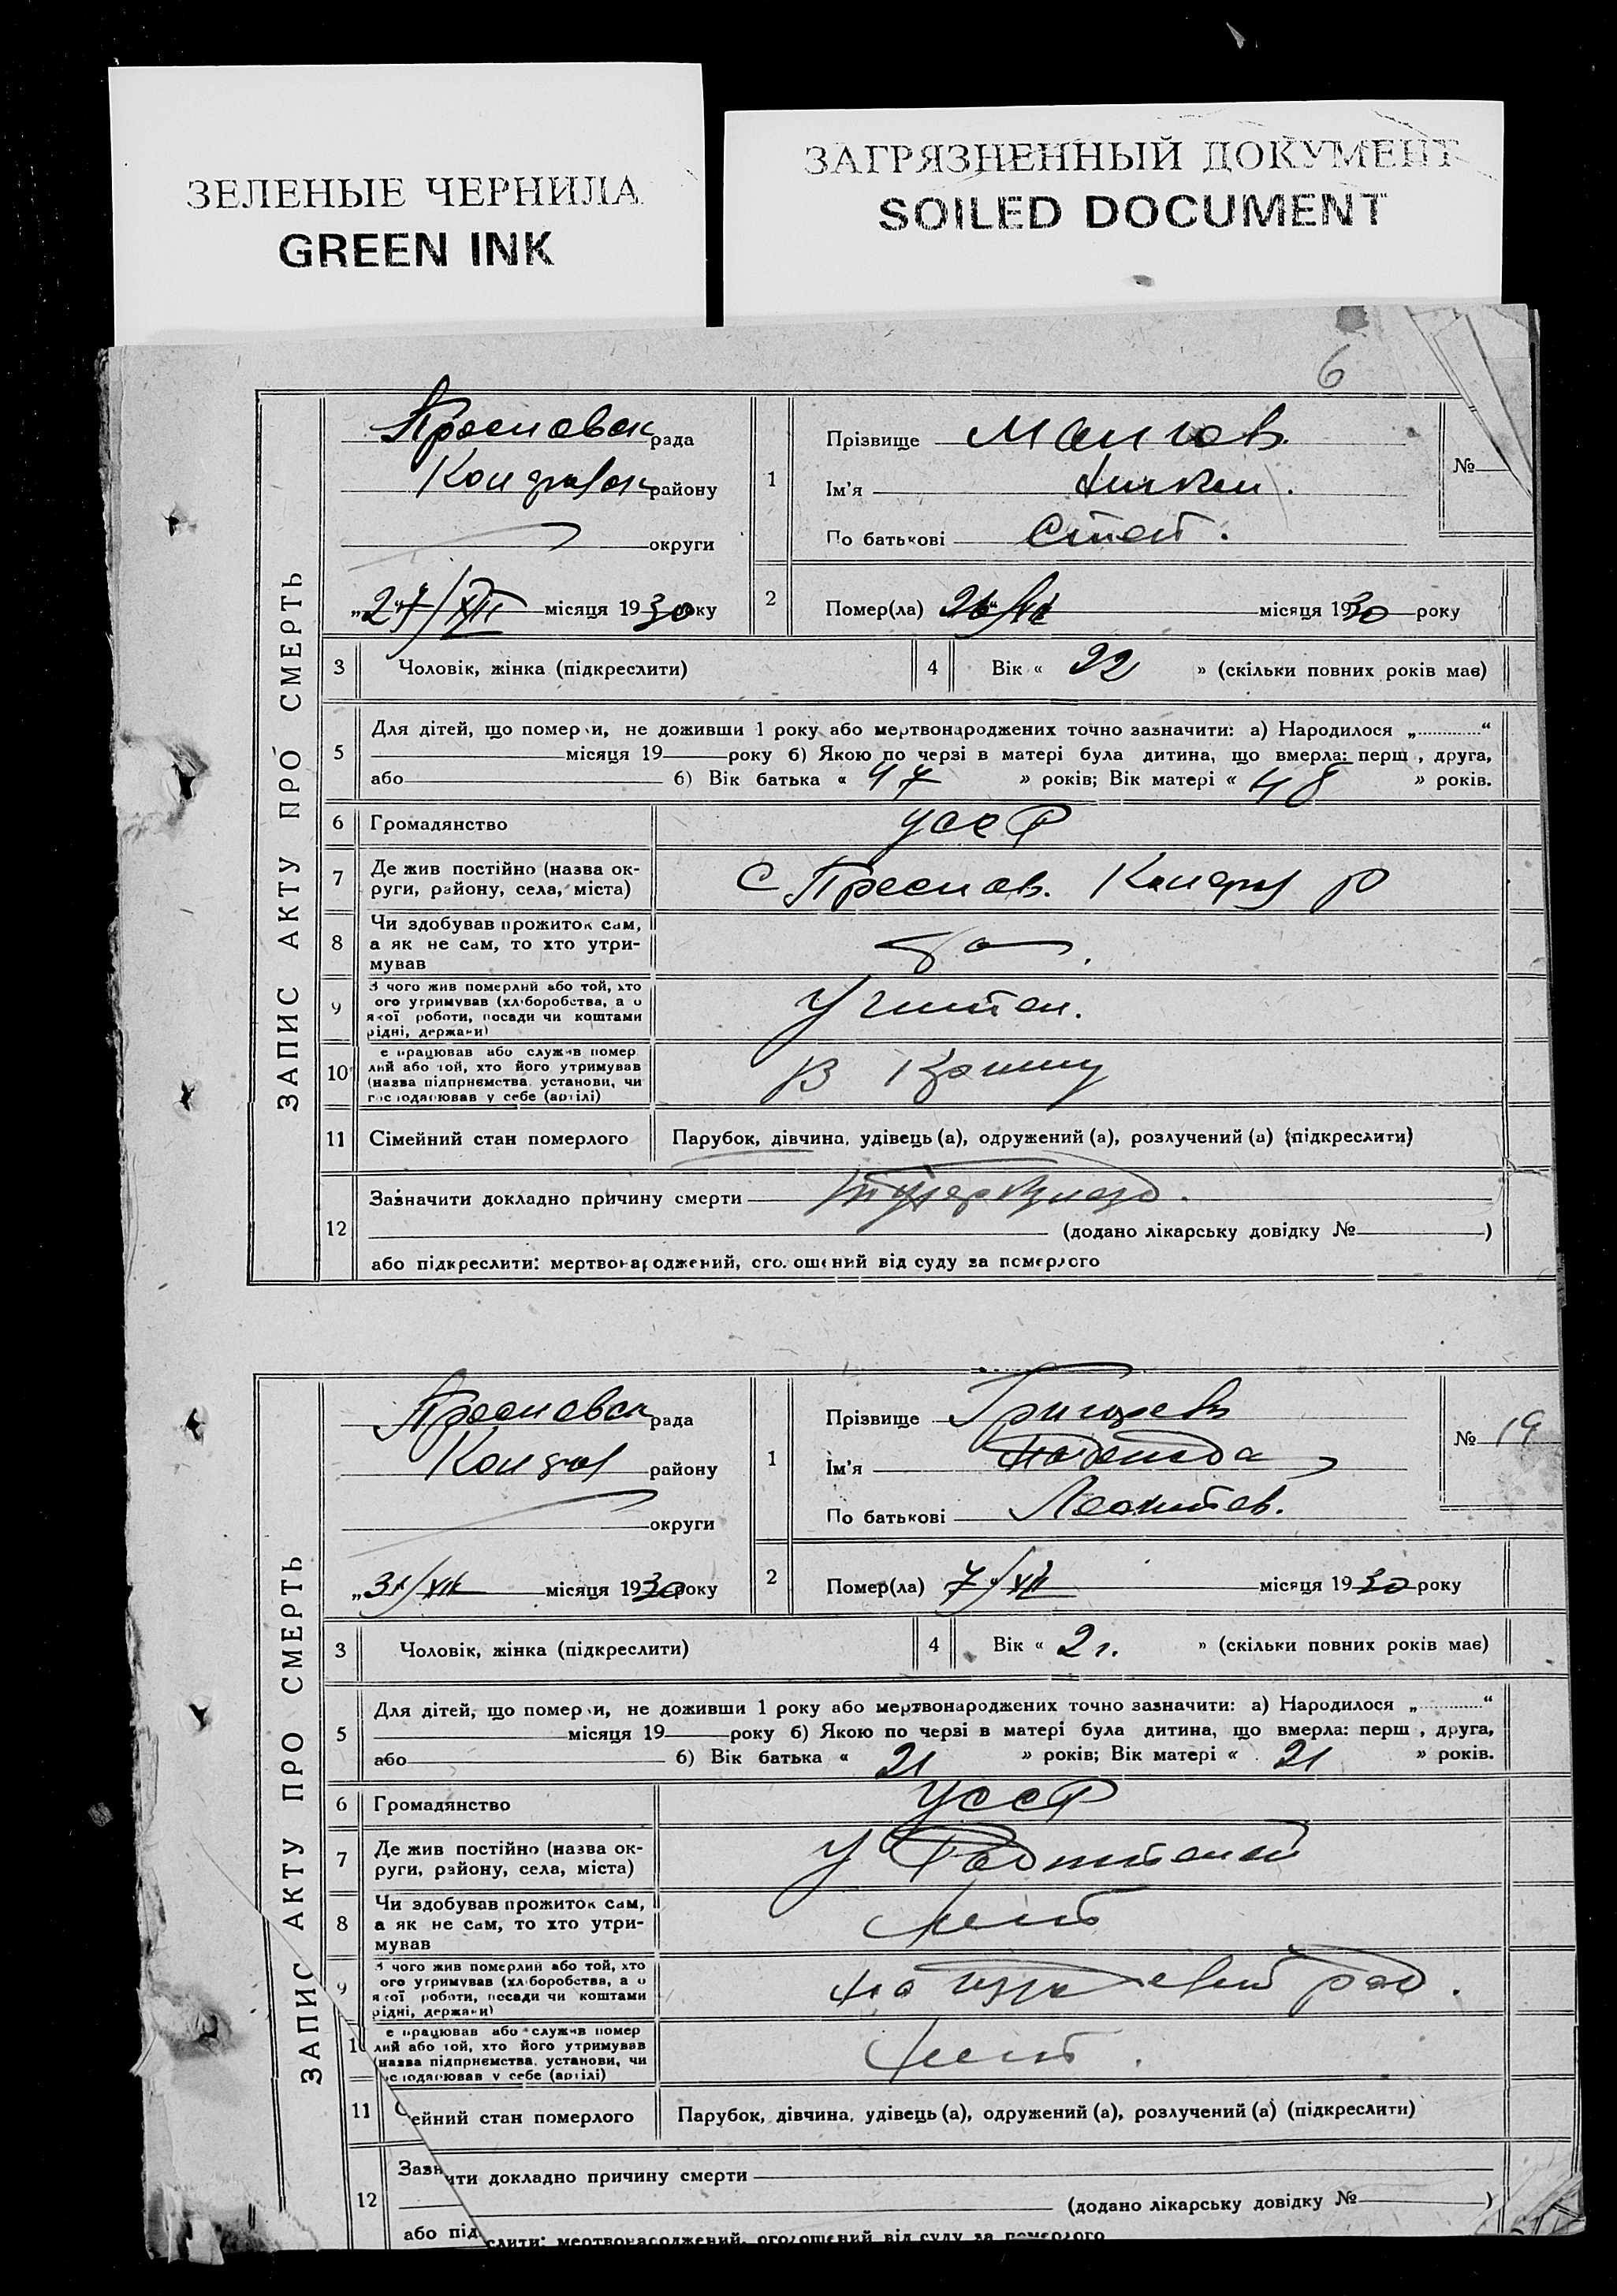 ЗЕЛЕНЫЕ ЧЕРНИЛА
GREEN INK
ЗАГРЯЗНЕННЫЙ ДОКУМЕНТ
SOILED DOCUMENT
6
ЗАПИС АКТУ ПРО СМЕРТЬ
рада
району
округи
„27/XII місяця 1930 року
1
Прізвище
Ім'я
По батькові Степ.
№
2
Помер(ла) 26/XII місяця 1930 року
3 Чоловік, жінка (підкреслити)
4 Вік « 22 » (скільки повних років має)
5
Для дітей, що померли, не доживши 1 року або мертвонароджених точно зазначити: а) Народилося „ “
місяця 19 року б) Якою по черзі в матері була дитина, що вмерла: перш , друга,
або б) Вік батька « 47 » років; Вік матері « 48 » років.
6 Громадянство УССР
7
Де жив постійно (назва ок-
руги, району, села, міста)
8
Чи здобував прожиток сам,
а як не сам, то хто утри-
мував
да.
9
З чого жив померлий або той, хто
ого утримував (хліборобства, а о
якої роботи, посади чи коштами
рідні, держави)
Учител.
10
е працював або служив помер
лий або той, хто його утримував
(назва підприємства, установи, чи
господарював у себе (артілі)
В Крыму
11 Сімейний стан померлого Парубок, дівчина, удівець (а), одружений (а), розлучений (а) (підкреслити)
12
Зазначити докладно причину смерти Туберкулезо.
(додано лікарську довідку № )
або підкреслити: мертвонароджений, оголошений від суду за померлого
ЗАПИС АКТУ ПРО СМЕРТЬ
рада
району
округи
„31/XII місяця 1930 року
1
Прізвище Григорьев
Ім'я Надежда
По батькові Леонтьев.
№ 19
2
Помер(ла) 7/XII місяця 1930 року
3 Чоловік, жінка (підкреслити)
4 Вік « 2 г. » (скільки повних років має)
5
Для дітей, що померли, не доживши 1 року або мертвонароджених точно зазначити: а) Народилося „ “
місяця 19 року б) Якою по черзі в матері була дитина, що вмерла: перш , друга,
або б) Вік батька « 21 » років; Вік матері « 21 » років.
6 Громадянство УССР
7
Де жив постійно (назва ок-
руги, району, села, міста)
У Родителей
8
Чи здобував прожиток сам,
а як не сам, то хто утри-
мував
нет
9
З чого жив померлий або той, хто
ого утримував (хліборобства, а о
якої роботи, посади чи коштами
рідні, держави)
на род.
10
е працював або служив помер
лий або той, хто його утримував
(назва підприємства, установи, чи
господарював у себе (артілі)
нет.
11 ейний стан померлого Парубок, дівчина, удівець (а), одружений (а), розлучений (а) (підкреслити)
12
Зазн ити докладно причину смерти
(додано лікарську довідку № )
або під слити: мертвонароджений, оголошений від суду за померлого